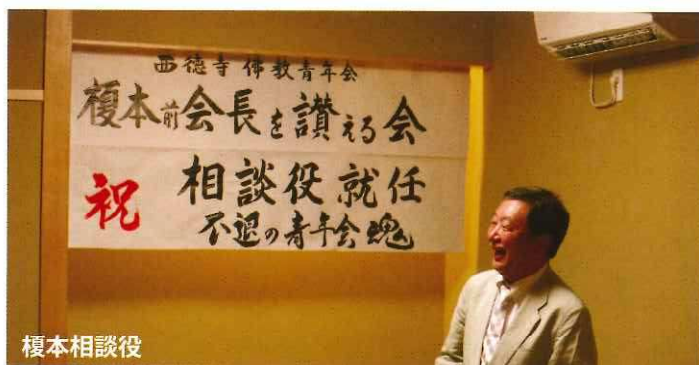 西徳寺 佛教青年会
榎本前会長を讃える会
祝 相談役就任
不退の青年会魂
榎本相談役